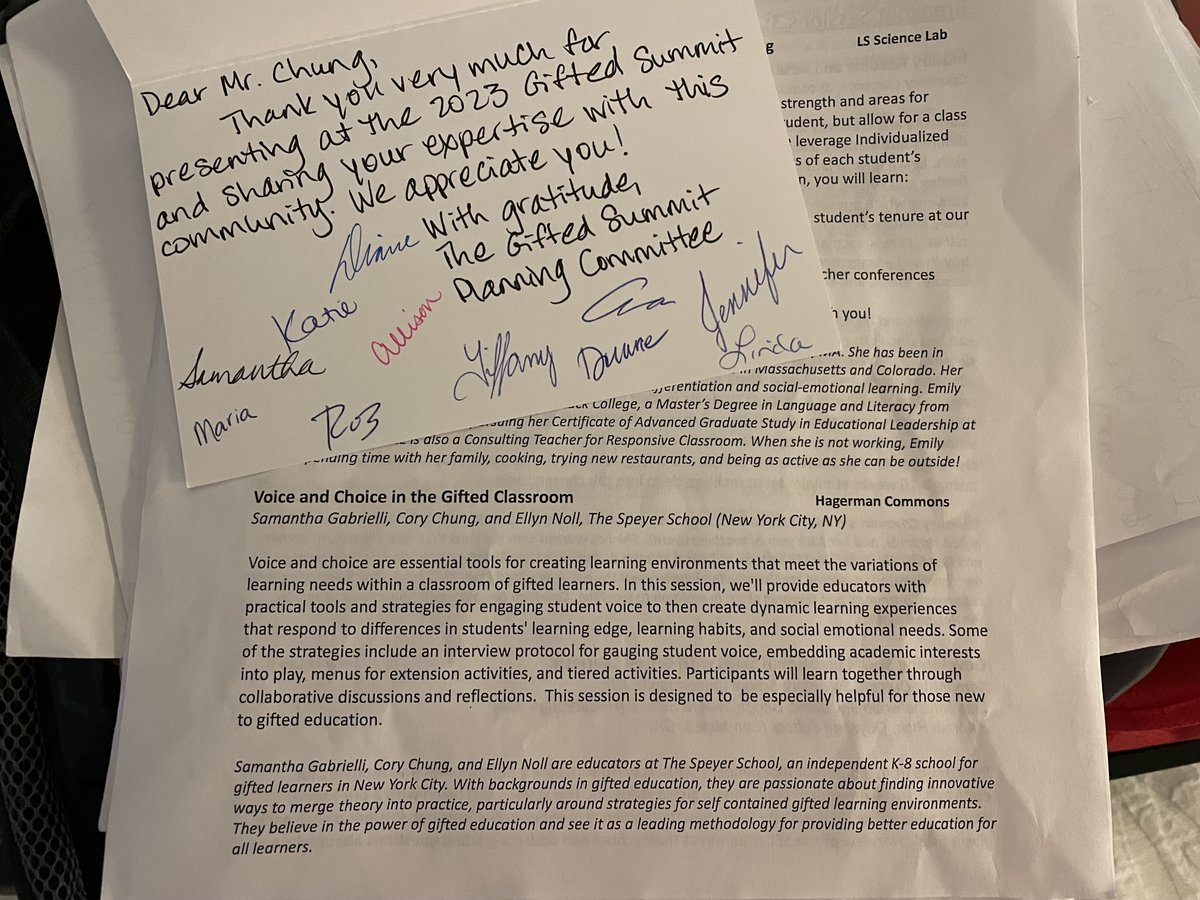 Dear Mr. Chung,
Thank you very much for
presenting at the 2023 Gifted Summit
and sharing your expertise with this
community. We appreciate you!
With gratitude,
The Gifted Summit
Planning Committee
Diane
Katie
Allison
Jennifer
Samantha
Tiffany
Duane
Linda
Maria
Rob
g LS Science Lab
strength and areas for
udent, but allow for a class
leverage Individualized
s of each student's
n, you will learn:
student's tenure at our
cher conferences
you!
MA. She has been in
Massachusetts and Colorado. Her
fferentiation and social-emotional learning. Emily
College, a Master's Degree in Language and Literacy from
her Certificate of Advanced Graduate Study in Educational Leadership at
is also a Consulting Teacher for Responsive Classroom. When she is not working, Emily
ending time with her family, cooking, trying new restaurants, and being as active as she can be outside!
Voice and Choice in the Gifted Classroom Hagerman Commons
Samantha Gabrielli, Cory Chung, and Ellyn Noll, The Speyer School (New York City, NY)
Voice and choice are essential tools for creating learning environments that meet the variations of
learning needs within a classroom of gifted learners. In this session, we'll provide educators with
practical tools and strategies for engaging student voice to then create dynamic learning experiences
that respond to differences in students' learning edge, learning habits, and social emotional needs. Some
of the strategies include an interview protocol for gauging student voice, embedding academic interests
into play, menus for extension activities, and tiered activities. Participants will learn together through
collaborative discussions and reflections. This session is designed to be especially helpful for those new
to gifted education.
Samantha Gabrielli, Cory Chung, and Ellyn Noll are educators at The Speyer School, an independent K-8 school for
gifted learners in New York City. With backgrounds in gifted education, they are passionate about finding innovative
ways to merge theory into practice, particularly around strategies for self contained gifted learning environments.
They believe in the power of gifted education and see it as a leading methodology for providing better education for
all learners.